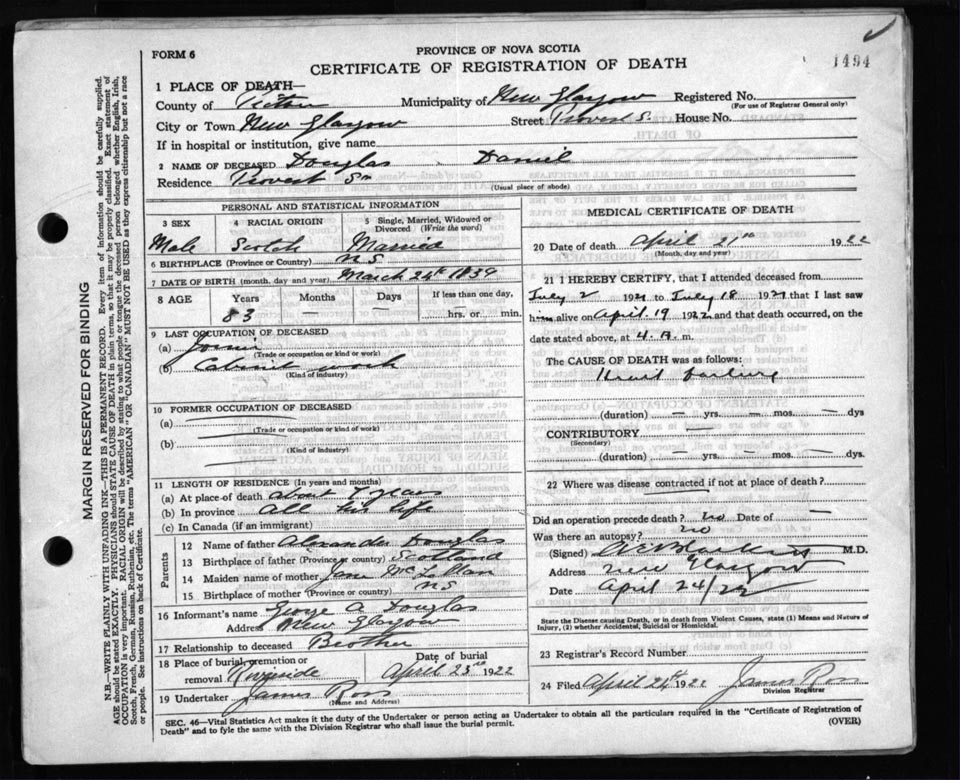 1494
FORM 6
PROVINCE OF NOVA SCOTIA
CERTIFICATE OF REGISTRATION OF DEATH
MARGIN RESERVED FOR BINDING
N.B.—WRITE PLAINLY WITH UNFADING INK—THIS IS A PERMANENT RECORD. Every item of information should be carefully supplied.
AGE should be stated EXACTLY. PHYSICIANS should STATE CAUSE OF DEATH in plain terms, so that it may be properly classified. Exact statement of
OCCUPATION is very important. RACIAL ORIGIN will be described by stating to what people or tongue the deceased person belonged whether English, Irish,
Scotch, French, German, Russian, Ruthenian, etc. The terms "AMERICAN" OR "CANADIAN" MUST NOT BE USED as they express citizenship but not a race
or people. See instructions on back of Certificate.
1 PLACE OF DEATH—
County of Pictou Municipality of New Glasgow Registered No.
(For use of Registrar General only)
City or Town New Glasgow Street Provost S. House No.
If in hospital or institution, give name
2 NAME OF DECEASED Douglas Daniel
Residence Provost St
(Usual place of abode)
PERSONAL AND STATISTICAL INFORMATION
3 SEX
Male
4 RACIAL ORIGIN
Scotch
5 Single, Married, Widowed or
Divorced (Write the word)
Married
6 BIRTHPLACE (Province or Country) N S
7 DATE OF BIRTH (month, day and year) March 24th 1839
8 AGE Years Months Days If less than one day,
83 — — hrs. or min.
9 LAST OCCUPATION OF DECEASED
(a) Joiner
(Trade or occupation or kind or work)
(b) Cabinet work
(Kind of industry)
10 FORMER OCCUPATION OF DECEASED
(a)
(Trade or occupation or kind of work)
(b)
(Kind of industry)
11 LENGTH OF RESIDENCE (In years and months)
(a) At place of death about 7 years
(b) In province All his life
(c) In Canada (if an immigrant)
Parents
12 Name of father Alexander Douglas
13 Birthplace of father (Province or country) Scotland
14 Maiden name of mother Jane McLellan
15 Birthplace of mother (Province or country) N S
16 Informant's name George A Douglas
Address New Glasgow
17 Relationship to deceased Brother
18 Place of burial, cremation or
removal Riverside
Date of burial
April 23rd 1922
19 Undertaker James Ross
(Name and Address)
MEDICAL CERTIFICATE OF DEATH
20 Date of death April 21st 1922
(Month, day and year)
21 I HEREBY CERTIFY, that I attended deceased from
July 2 1921 to July 18 1921 that I last saw
him alive on April 19 1922 and that death occurred, on the
date stated above, at 4. A. m.
The CAUSE OF DEATH was as follows:
Heart failure
(duration) — yrs. — mos. — dys
CONTRIBUTORY —
(Secondary)
(duration) — yrs. — mos. — dys.
22 Where was disease contracted if not at place of death?
Did an operation precede death? no Date of —
Was there an autopsy? no
(Signed) M.D.
Address New Glasgow
Date April 24/22
State the Disease causing Death, or in death from Violent Causes, state (1) Means and Nature of
Injury, (2) whether Accidental, Suicidal or Homicidal.
23 Registrar's Record Number
24 Filed April 24th 1922 James Ross
Division Registrar
SEC. 46—Vital Statistics Act makes it the duty of the Undertaker or person acting as Undertaker to obtain all the particulars required in the "Certificate of Registration of
Death" and to fyle the same with the Division Registrar who shall issue the burial permit. (OVER)